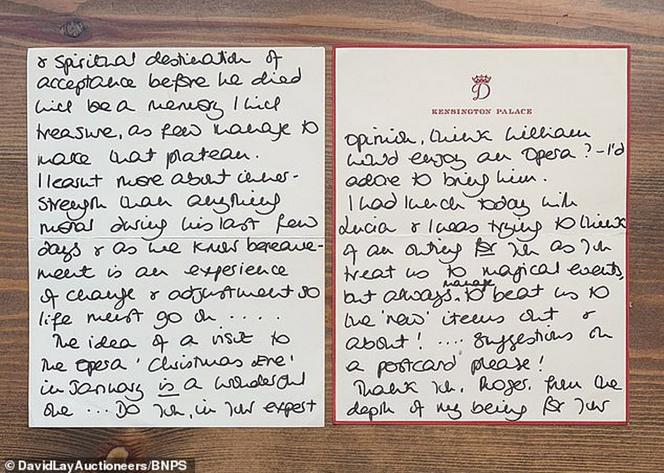 & spiritual destination of
acceptance before he died
will be a memory I will
treasure, as few manage to
make that plateau.
I learnt more about inner-
strength than anything
moral during his last few
days & as we know bereave-
ment is an experience
of change & adjustment so
life must go on .....
The idea of a visit to
the opera 'Christmas Eve'
in January is a wonderful
one ... Do you, in your expert
D
KENSINGTON PALACE
opinion, think William
would enjoy an Opera? - I'd
adore to bring him.
I had lunch today with
Lucia & I was trying to think
of an outing for you as you
treat us to magical events,
but always manage to beat us to
the 'new' items out &
about! .... suggestions on
a postcard please!
Thank you, Roger, from the
depth of my being for your
©DavidLayAuctioneers/BNPS